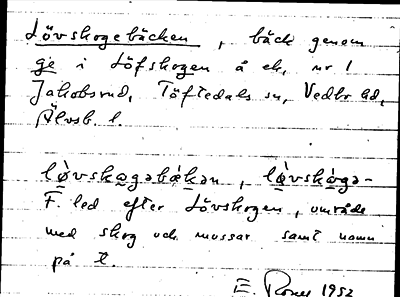 Lövskogebäcken, bäck genom
ge i Löfskogen å ek, nr 1
Jakobsrud, Töftedals sn, Vedbo hd,
Älvsb. l.
lö̀vskǫgəbækən, lö̀vskǫgə-
F. led efter Lövskogen, område
med skog och mossar samt namn
på t.
E 1952